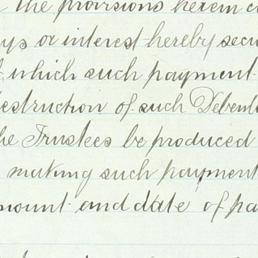 the provisions herein c
ys or interest hereby secu
which such payment
estruction of such Debent
he Trustees be produced
making such payment
mount and date of pa